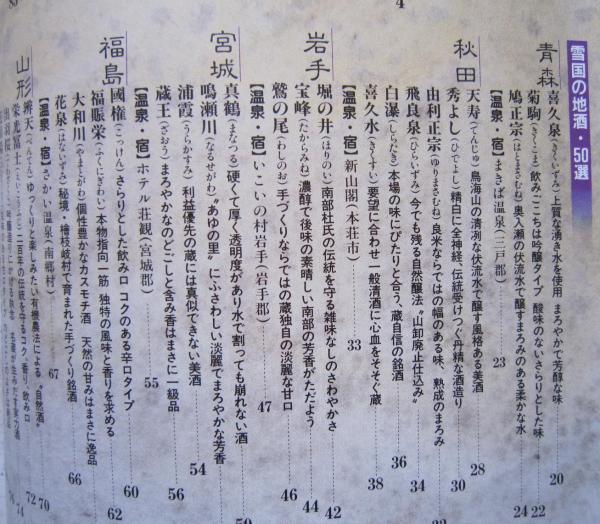 4
雪国の地酒・50選
青森
喜久泉(きくいずみ) 上質な湧き水を使用 まろやかで芳醇な味 20
菊駒(きくこま) 飲みごこちは吟醸タイプ 酸味のないさらりとした味 22
鳩正宗(はとまさむね) 奥入瀬の伏流水で醸すまろみのある柔かな水 24
【温泉・宿】まきば温泉(三戸郡) 23
秋田
天寿(てんじゅ) 鳥海山の清冽な伏流水で醸す風格ある美酒 28
秀よし(ひでよし) 精白に全神経、伝統受けつぐ丹精な酒造り 30
由利正宗(ゆりまさむね) 良米ならではの幅のある味、熟成のまろみ 34
飛良泉(ひらいずみ) 今でも残る自然醸法〝山卸廃止仕込み〟 32
白瀑(しらたき) 本場の味にぴたりと合う、蔵自信の銘酒 36
喜久水(きくすい) 要望に合わせ一般清酒に心血をそそぐ蔵 38
【温泉・宿】新山閣(本荘市) 33
岩手
堀の井(ほりのい) 南部杜氏の伝統を守る雑味なしのさわやかさ 42
宝峰(たからみね) 濃醇で後味の素晴しい南部の芳香がただよう 44
鷲の尾(わしのお) 手づくりならではの蔵独自の淡麗な甘口 46
【温泉・宿】いこいの村岩手(岩手郡) 47
宮城
真鶴(まなつる) 硬くて厚く透明度があり水で割っても崩れない酒 50
鳴瀬川(なるせがわ) 〝あゆの里〟にふさわしい淡麗でまろやかな芳香
浦霞(うらかすみ) 利益優先の蔵には真似できない美酒 54
蔵王(ざおう) まろやかなのどごしと含み香はまさに一級品 56
【温泉・宿】ホテル荘観(宮城郡) 55
福島
國権(こっけん) さらりとした飲み口 コクのある辛口タイプ 60
福賑栄(ふくにぎわい) 本物指向一筋 独特の風味と香りを求める 62
大和川(やまとがわ) 個性豊かなカスモチ酒 天然の甘みはまさに逸品
花泉(はないずみ) 秘境・檜枝岐村で育まれた手づくり銘酒 66
【温泉・宿】さかい温泉(南郷村) 67
山形
辨天(べんてん) ゆっくりと楽しみたい有機農法による〝自然酒〟 70
栄光冨士(えいこうふじ) 二百年の伝統を守るコク、香り、飲み口 72
74